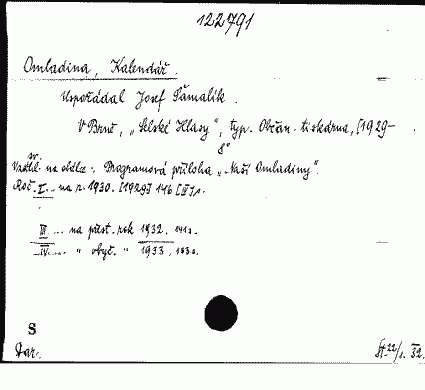 122791
Omladina, Kalendář.
Uspořádal Josef Šamalík.
V Brně, „Selské Hlasy", typ. Občan. tiskárna, [1929-
8°
na obálce: Programová příloha „Naší Omladiny".
Roč. I... na r. 1930. [1929] 146 [II] s.
III... na přest. rok 1932. 141 s.
IV... " obyč. " 1933. 183 s.
S
Dar.
22/1. 32.